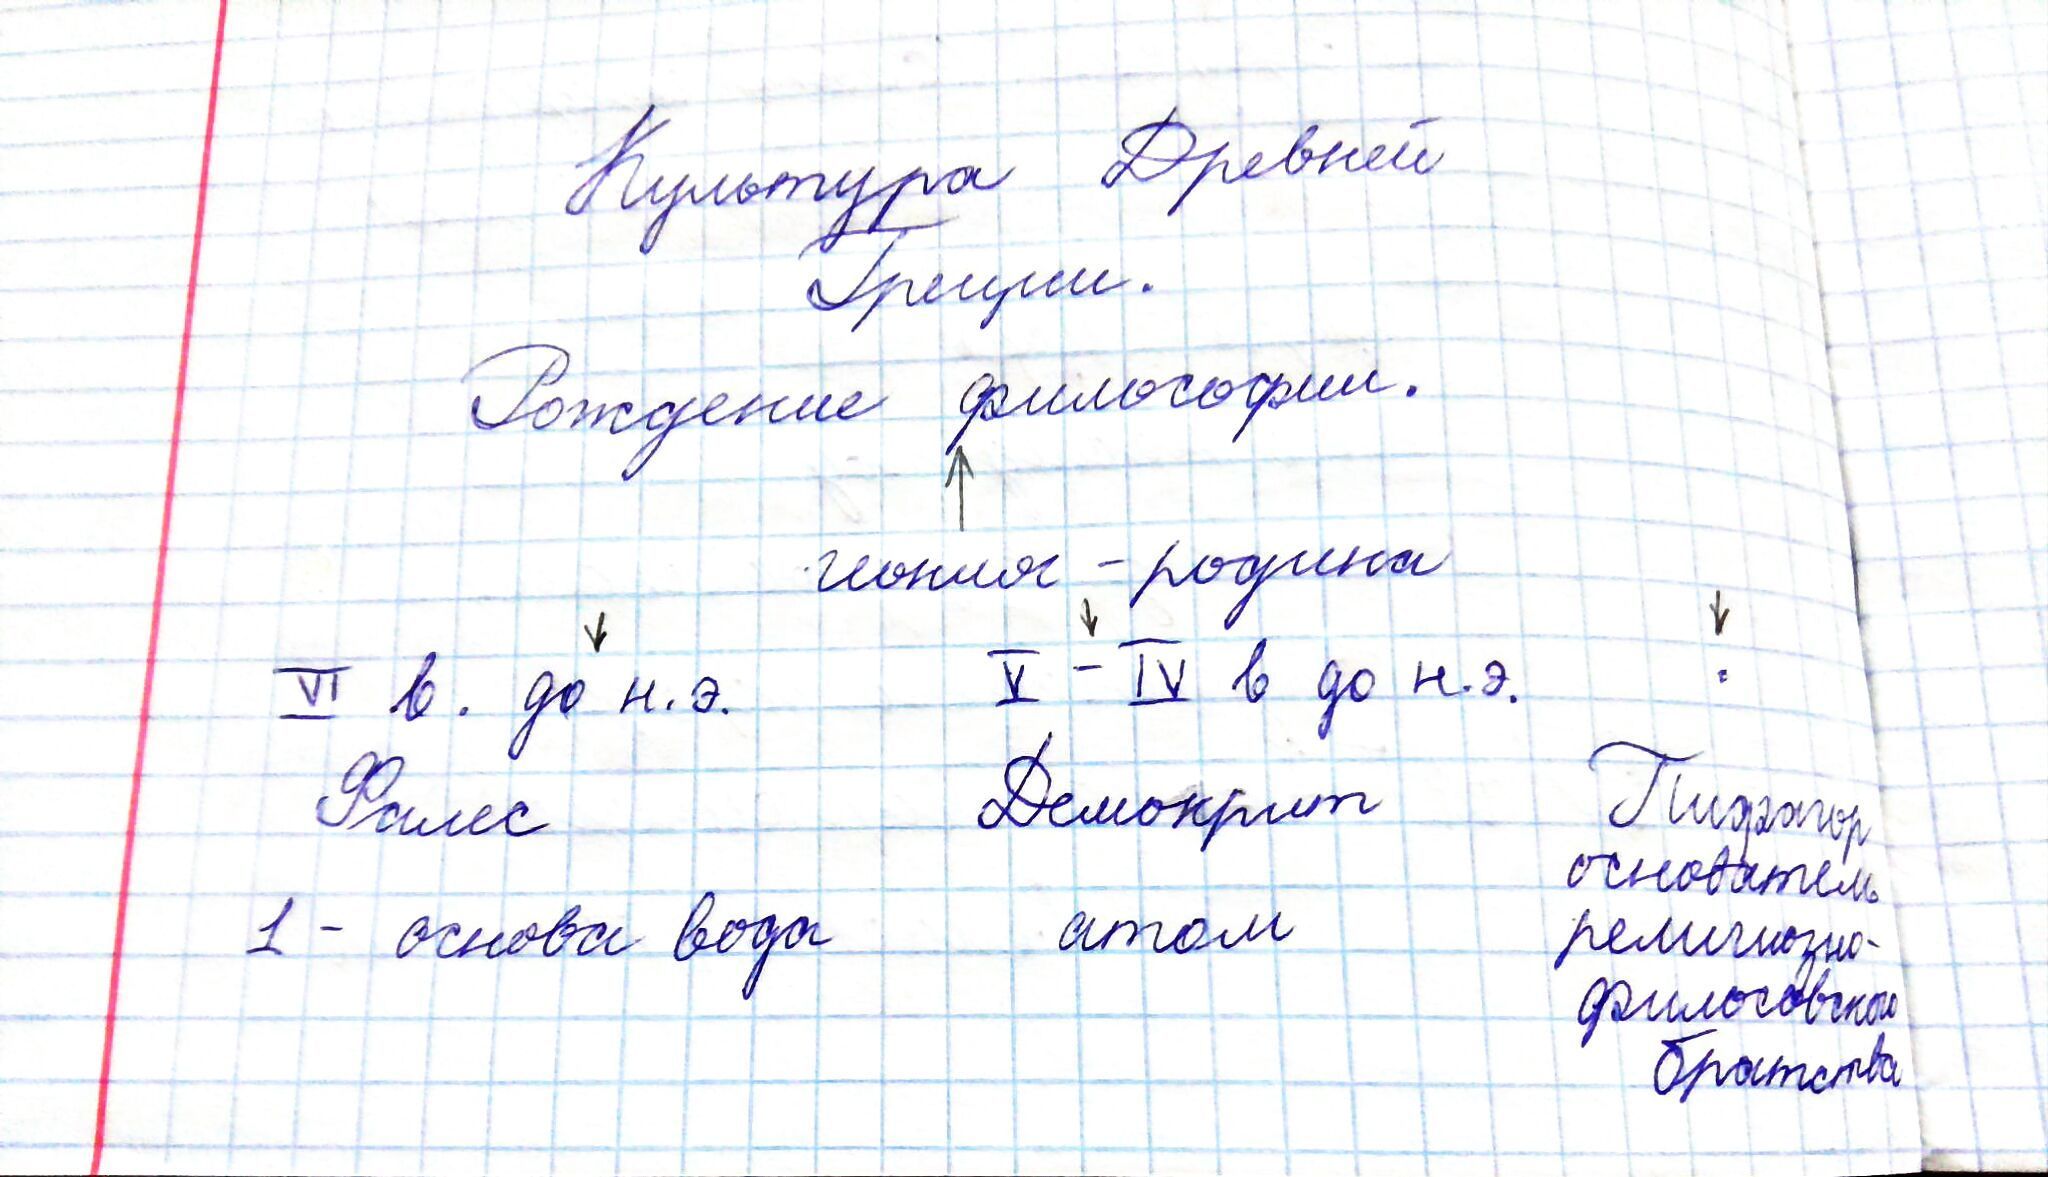 Культура Древней
Греции.
Рождение философии.
иония - родина
VI в. до н.э. V - IV в до н.э.
Фалес Демокрит Пифагор
основатель
1 - основа вода атом религиозно-
философской
братства